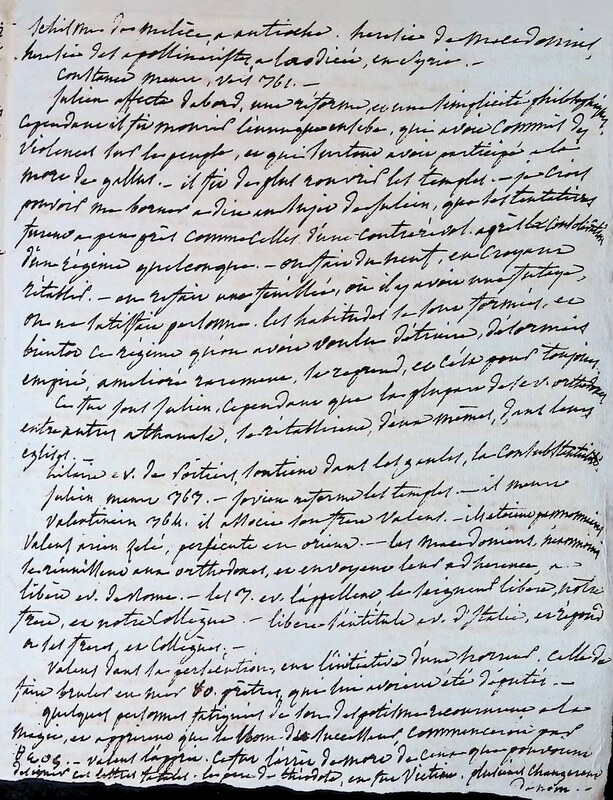 schisme de melèce a antioche. heresie de Macedonius,
heresie des apollinaristes, a laodicée, en Syrie. —
Constance meurt, vers 361. —
Julien affecte d'abord, une réforme, et une simplicité philosophique,
cependant il fit mourir l'eunuque eusebe, que avoit commis des
violences sur les peuples, et qui surtout avoit participé a la
mort de gallus. — il fit de plus rouvrir les temples. — je crois
pouvoir me borner a dire au sujet de Julien, que ses tentatives
furent a peu près comme celles d'une contrerévol. après la consolidation
d'un régime quelconque. — on fait du neuf, en croyant
rétablir. — on refait une feuillée, où il y avoit une futaye,
on ne satisfait personne. les habitudes se sont formées, et
bientot ce régime qu'on avoit voulu détruire, désormais
empiré, amelioré rarement, se reprend, et cela pour toujours.
Ce fut sous Julien, cependant que la plupart des ev. orthodoxes
entre autres athanase, se retablirent, d'eux mêmes, dans leurs
eglises.
hilaire ev. de Poitiers, soutient dans les gaules, la consubstantialité
Julien meurt 363. — Jovien referme les temples. — il meurt
Valentinien 364. il associe son frere Valens. —
Valens arien zelé, persecute en orient. — les Macedoniens, néanmoins
se réunissent aux orthodoxes, et envoyent leur adherence, a
libère ev. de Rome. — les ev. l'appellent le seigneur libere, notre
frere, et notre collègue. — libere s'intitule ev. d'Italie, et repond
a ses freres, et collègues. —
Valens dans la persécution, eut l'initiative d'une horreur, celle de
faire bruler en mer 80. prêtres, que lui avoient été deputés. —
quelques personnes fatiguées de son despotisme recoururent a la
magie, et apprirent que le nom du successeur commenceroit par
— Valens l'apprit. Ce fut l'arrêt de mort de ceux que pouvoient
designer ces lettres fatales. le pere de théodose, en fut victime, plusieurs changerent
de nom. —